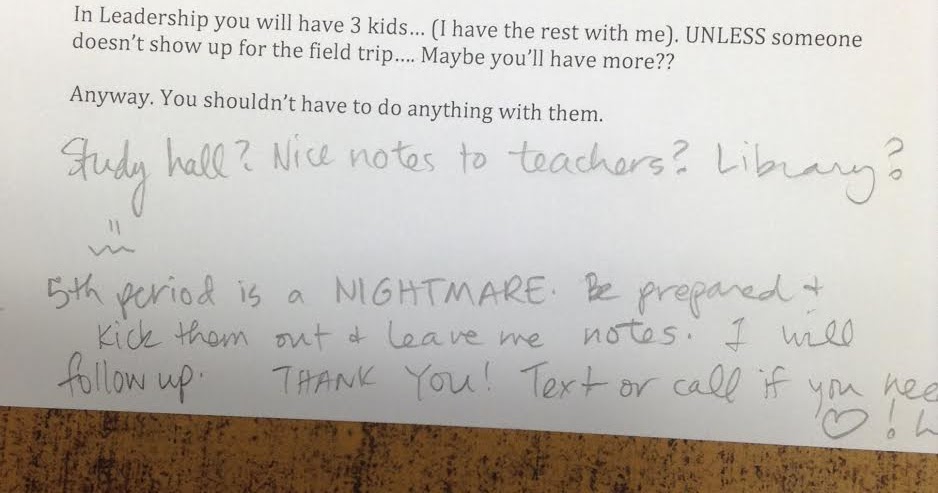 In Leadership you will have 3 kids... (I have the rest with me). UNLESS someone
doesn't show up for the field trip.... Maybe you'll have more??
Anyway. You shouldn't have to do anything with them.
Study hall? Nice notes to teachers? Library?
5th period is a NIGHTMARE. Be prepared +
kick them out & leave me notes. I will
follow up. THANK YOU! Text or call if you nee
♡!